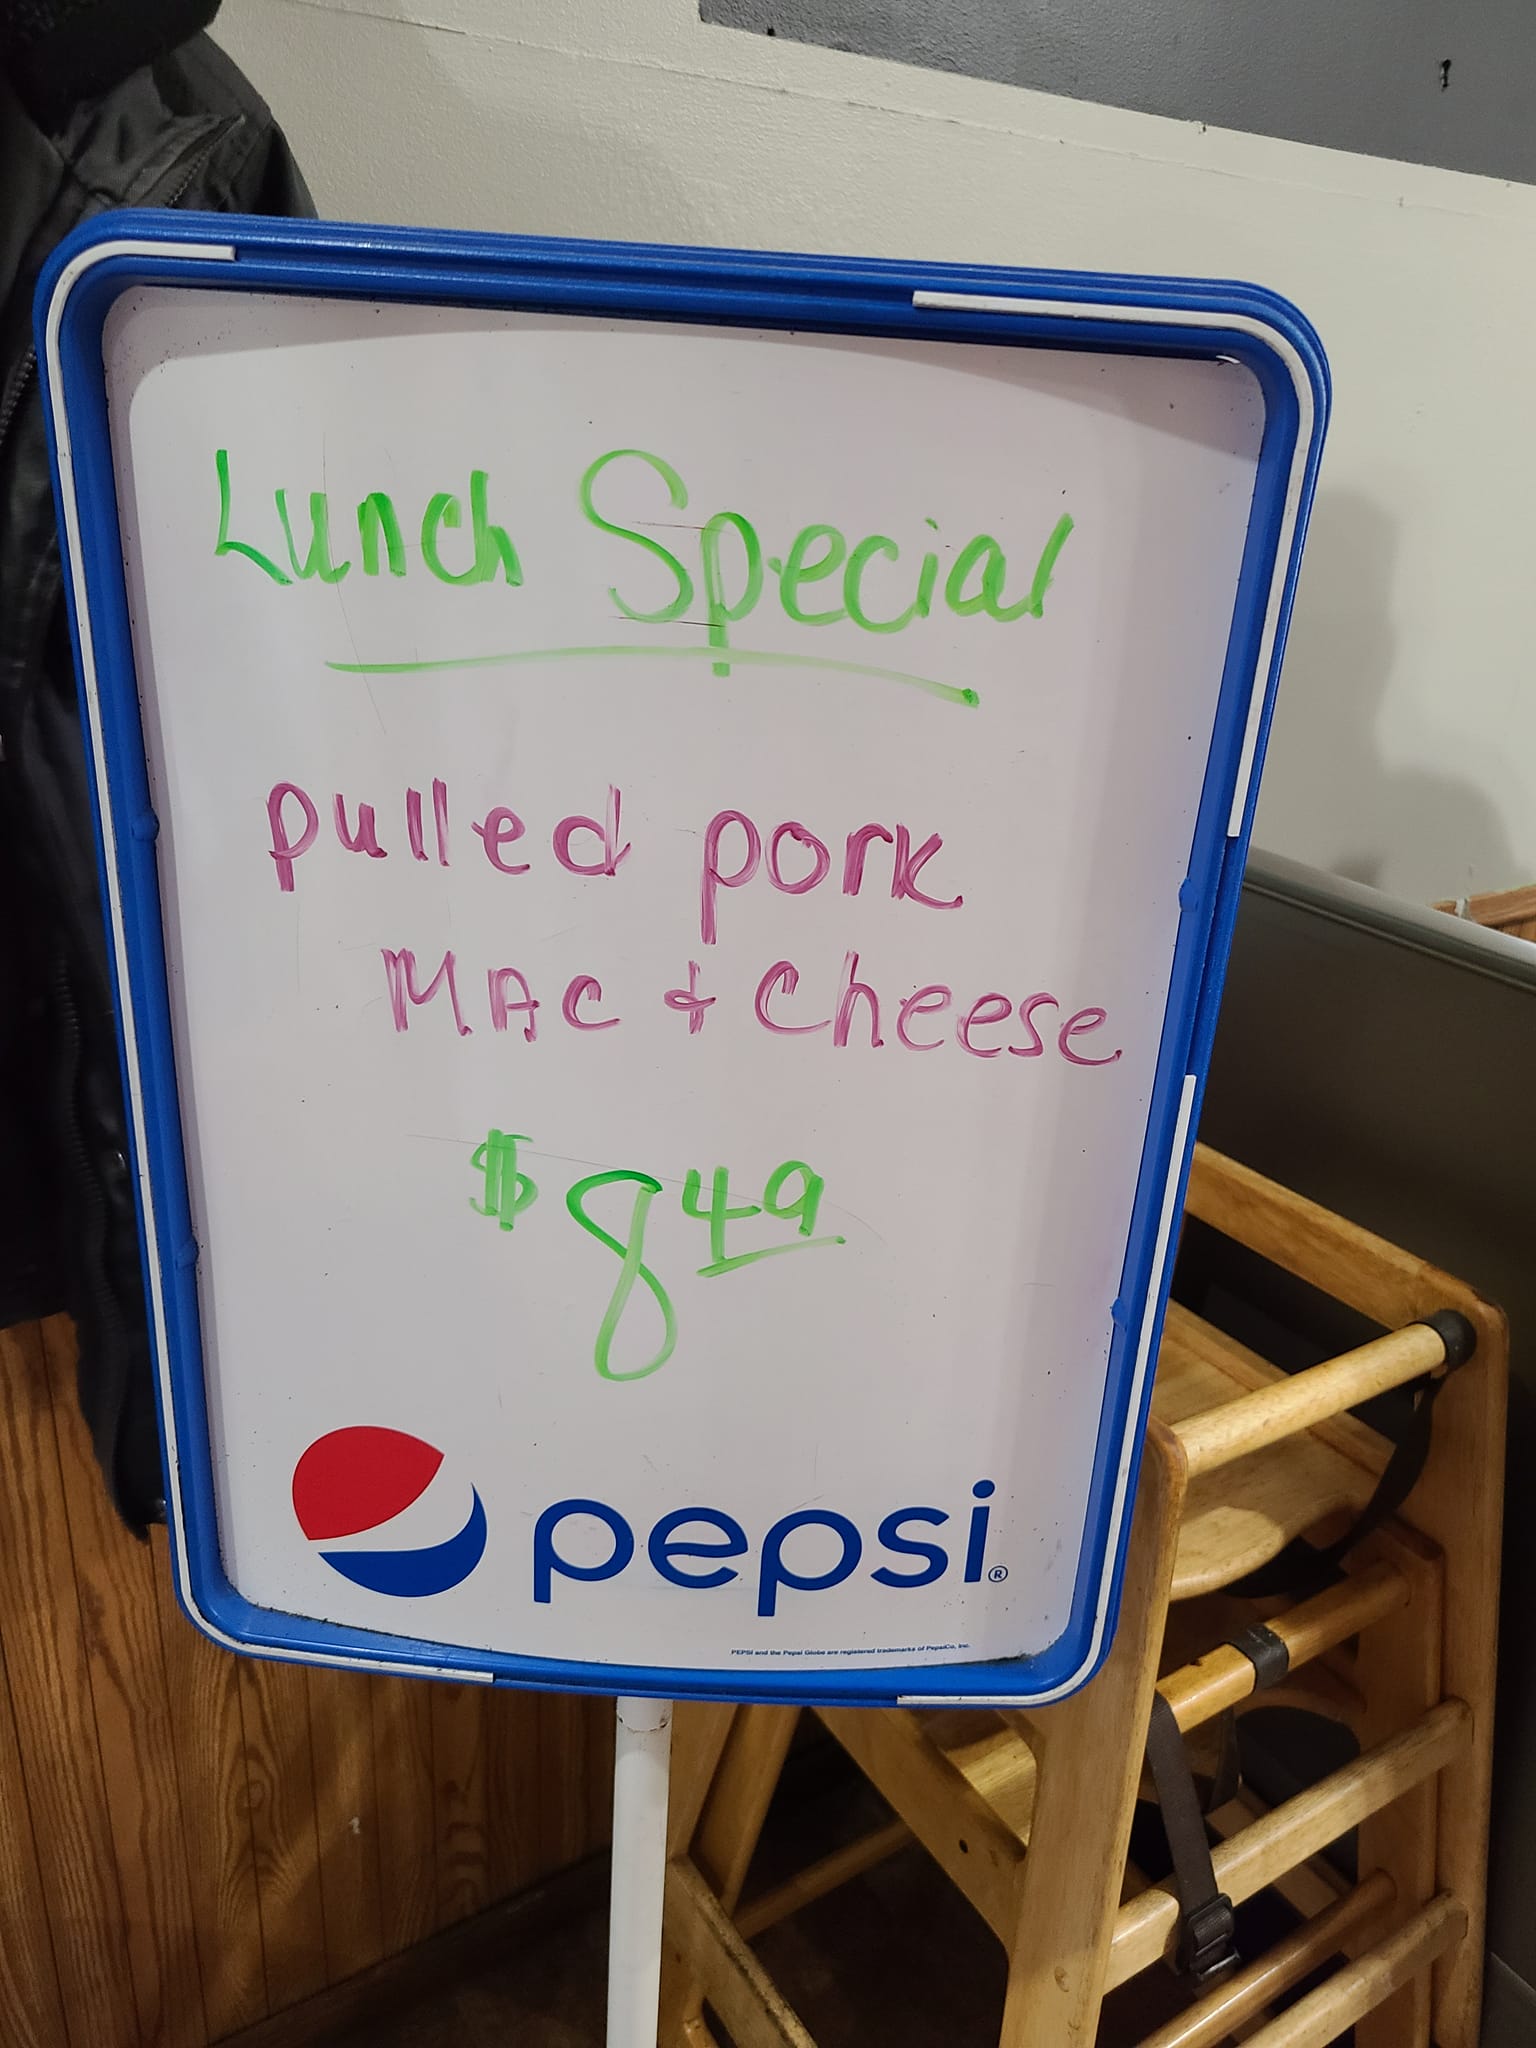 Lunch Special
pulled pork
MAC & Cheese
$8 49
pepsi®
PEPSI and the Pepsi Globe are registered trademarks of PepsiCo, Inc.